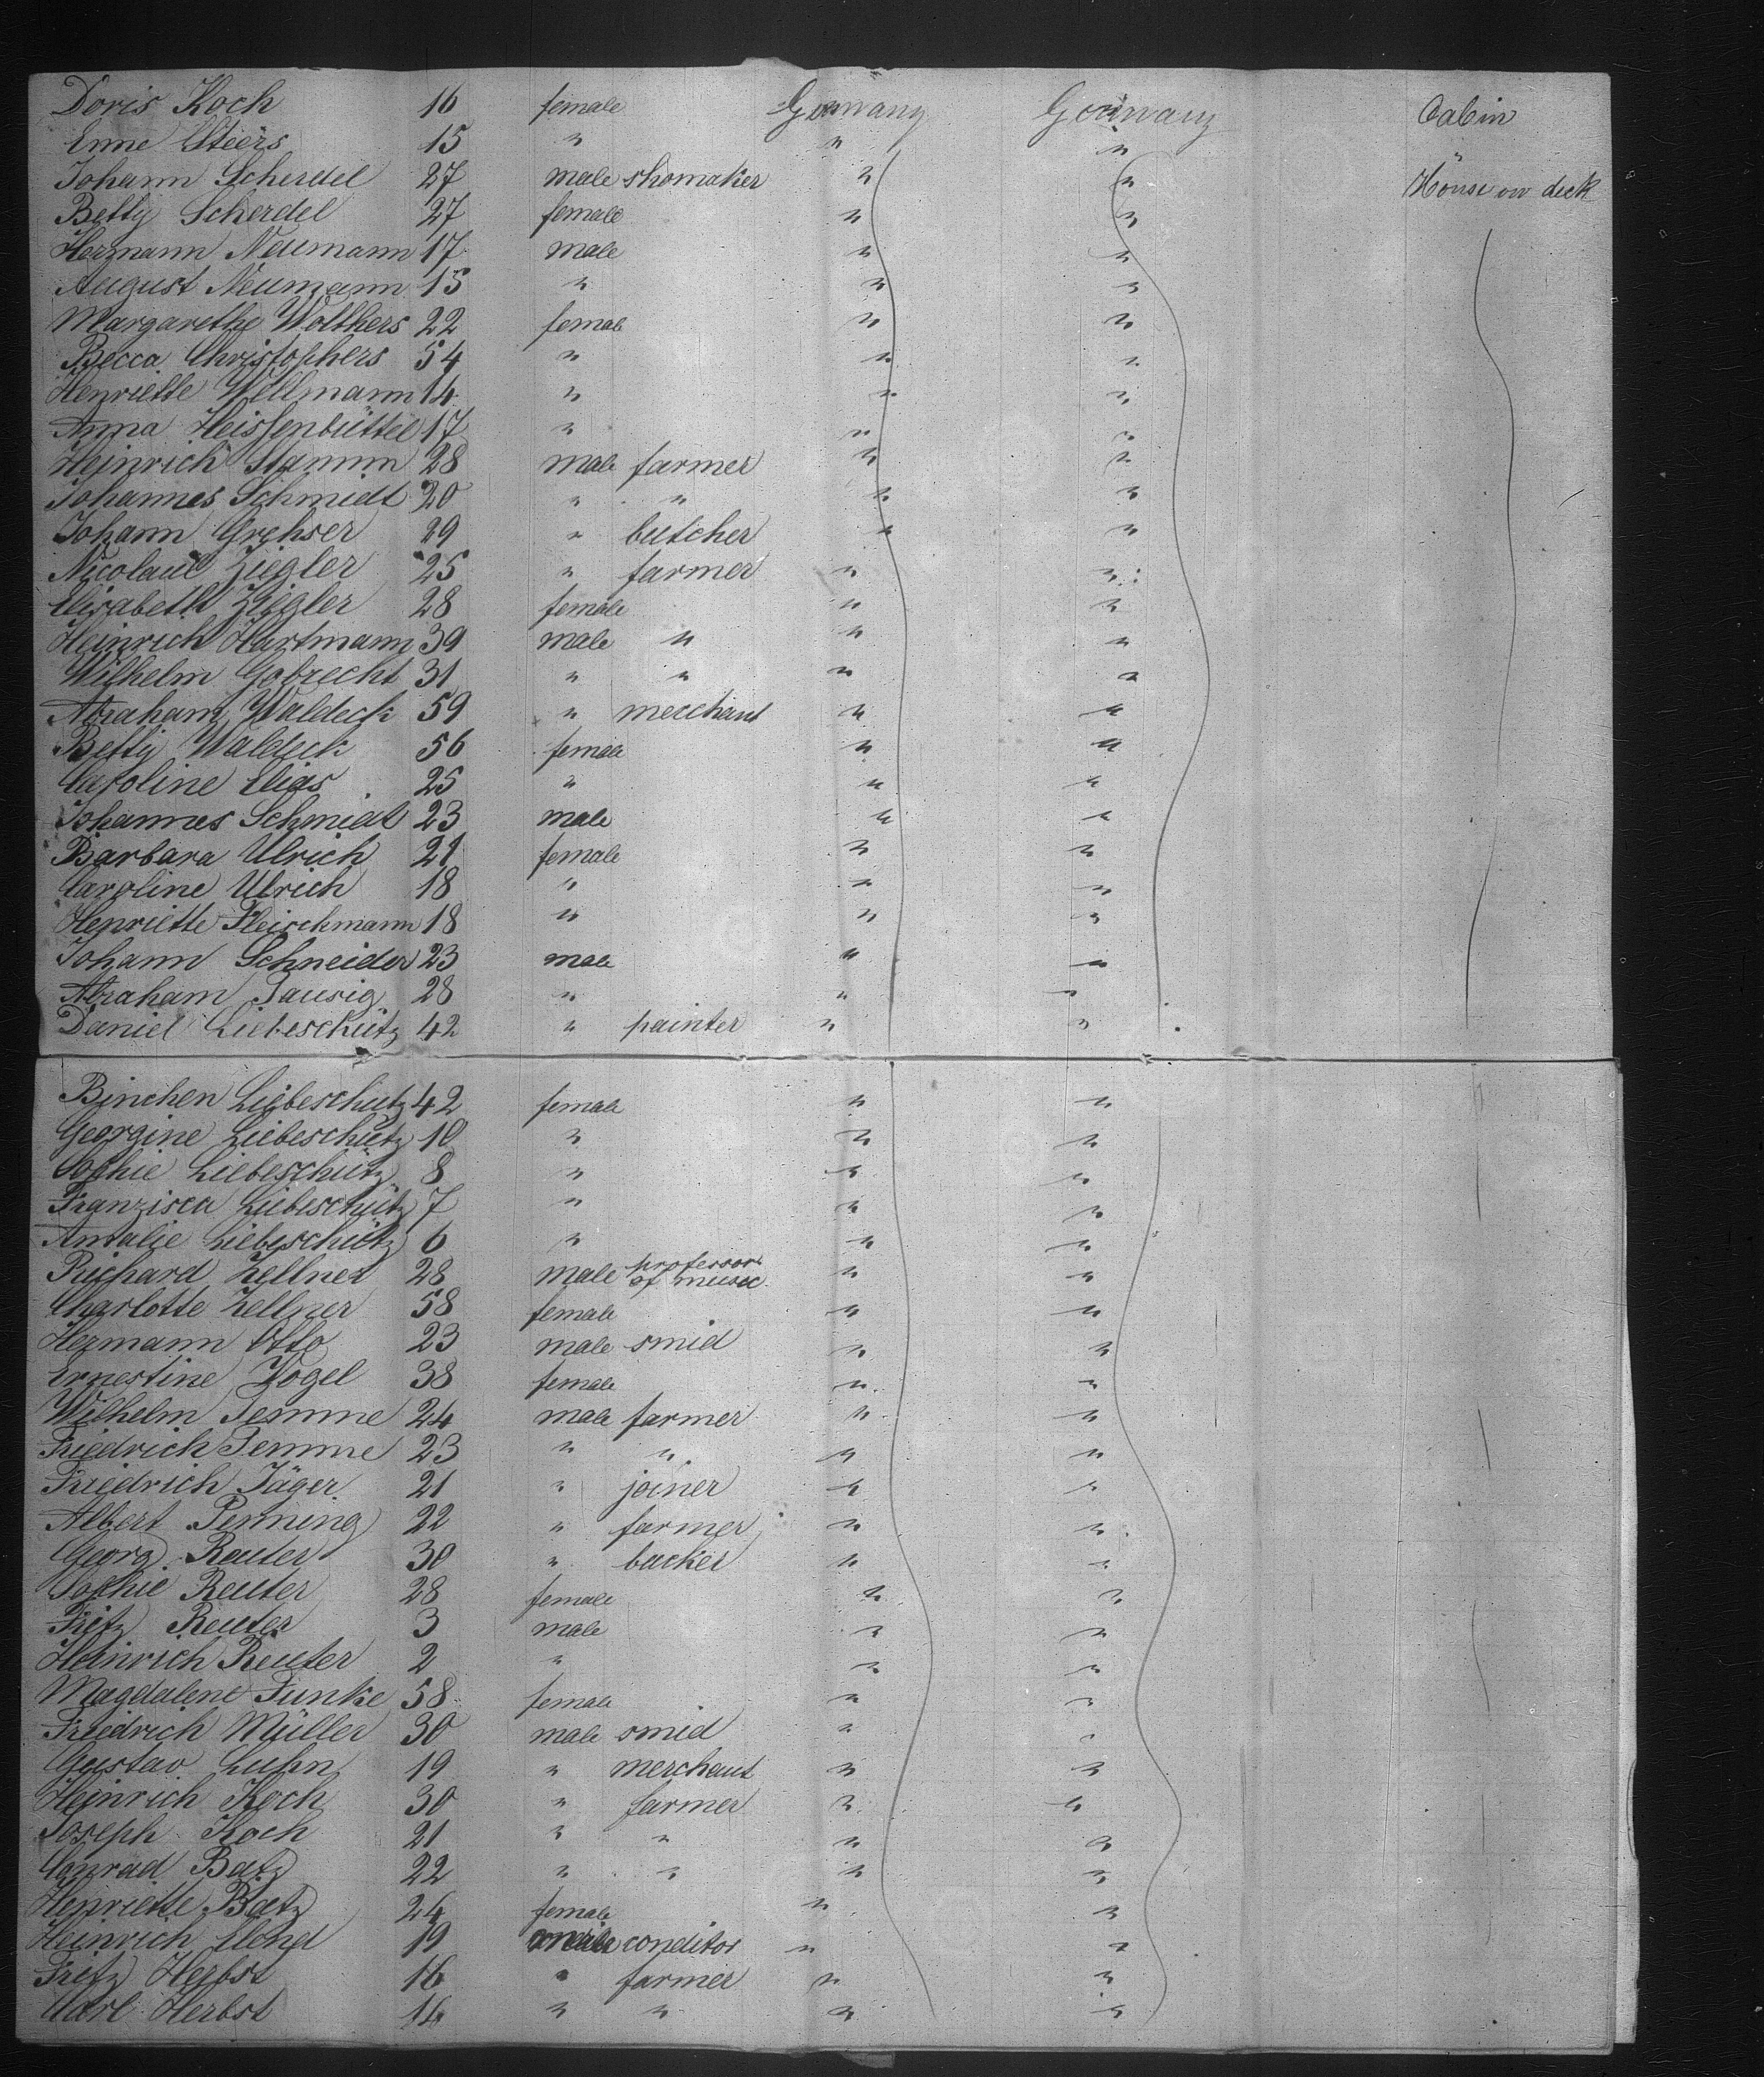 Doris Koch 16 female Germany Germany Cabin
Enne Steers 15 " " " "
Johann Scherdel 27 male shomaker " " House on deck
Betty Scherdel 27 female " "
Hermann Neumann 17 male " "
August Neumann 15 " " "
Margarethe Wolthers 22 female " "
Becca Christophers 54 " " "
Henriette Wellmann 14 " " "
Anna Heissenbüttel 17 " " "
Heinrich Stamm 28 male farmer " "
Johannes Schmidt 20 " " " "
Johann Grehser 29 " butcher " "
Nicolaus Ziegler 25 " farmer " "
Elisabeth Ziegler 28 female " "
Heinrich Hartmann 39 male " " "
Wilhelm Gobrecht 31 " " " "
Abraham Waldeck 59 " merchant " "
Betty Waldeck 56 female " "
Caroline Elias 25 " " "
Johannes Schmidt 23 male " "
Barbara Ulrich 21 female " "
Caroline Ulrich 18 " " "
Henriette Fleischmann 18 " " "
Johann Schneider 23 male " "
Abraham Tausig 28 " " "
Daniel Liebeschütz 42 " painter " "
Binchen Liebeschütz 42 female " "
Georgine Liebeschütz 10 " " "
Sophie Liebeschütz 8 " " "
Franzisca Liebeschütz 7 " " "
Amalie Liebeschütz 6 " " "
Richard Zellner 28 male professor of music " "
Charlotte Zellner 58 female " "
Hermann Otto 23 male smid " "
Ernestine Vogel 38 female " "
Wilhelm Temme 24 male farmer " "
Friedrich Temme 23 " " " "
Friedrich Jäger 21 " joiner " "
Albert Penning 22 " farmer " "
Georg Reuter 30 " backer " "
Sophie Reuter 28 female " "
Fritz Reuter 3 male " "
Heinrich Reuter 2 " " "
Magdalene Funke 58 female " "
Friedrich Müller 30 male smid " "
Gustav Luhn 19 " merchant " "
Heinrich Koch 30 " farmer " "
Joseph Koch 21 " " " "
Conrad Batz 22 " " " "
Henriette Batz 24 female " "
Heinrich 19 male conditor " "
Fritz Herbst 16 " farmer " "
Carl Herbst 14 " " " "